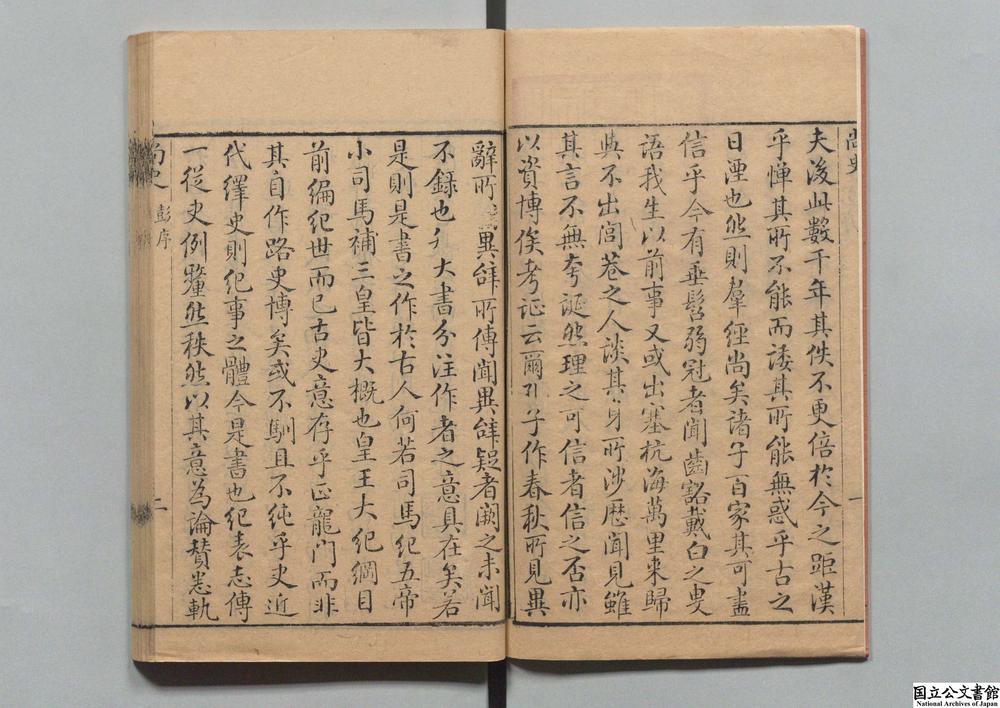 尚史
夫後此數千年其佚不更倍於今之距漢
乎憚其所不能而諉其所能無惑乎古之
日湮也然則羣經尚矣諸子百家其可盡
信乎今有垂髫弱冠者聞齒豁戴白之叟
語我生以前事又或出塞杭海萬里来歸
典不出閭巷之人談其身所涉歷聞見雖
其言不無夸誕然理之可信者信之否亦
以資博俟考证云爾孔子作春秋所見異
辭所異辝所傳聞異辝疑者阙之未聞
不錄也大書分注作者之意具在矣若
是則是書之作於古人何若司馬紀五帝
小司馬補三皇皆大概也皇王大紀綱目
前編紀世而已古史意存乎正龍门而非
其自作路史博矣或不馴且不纯乎史近
代繹史則紀事之體今是書也紀表志傳
一從史例釐然秩然以其意為論賛悉軌
尚史 彭序 二
国立公文書館
National Archives of Japan